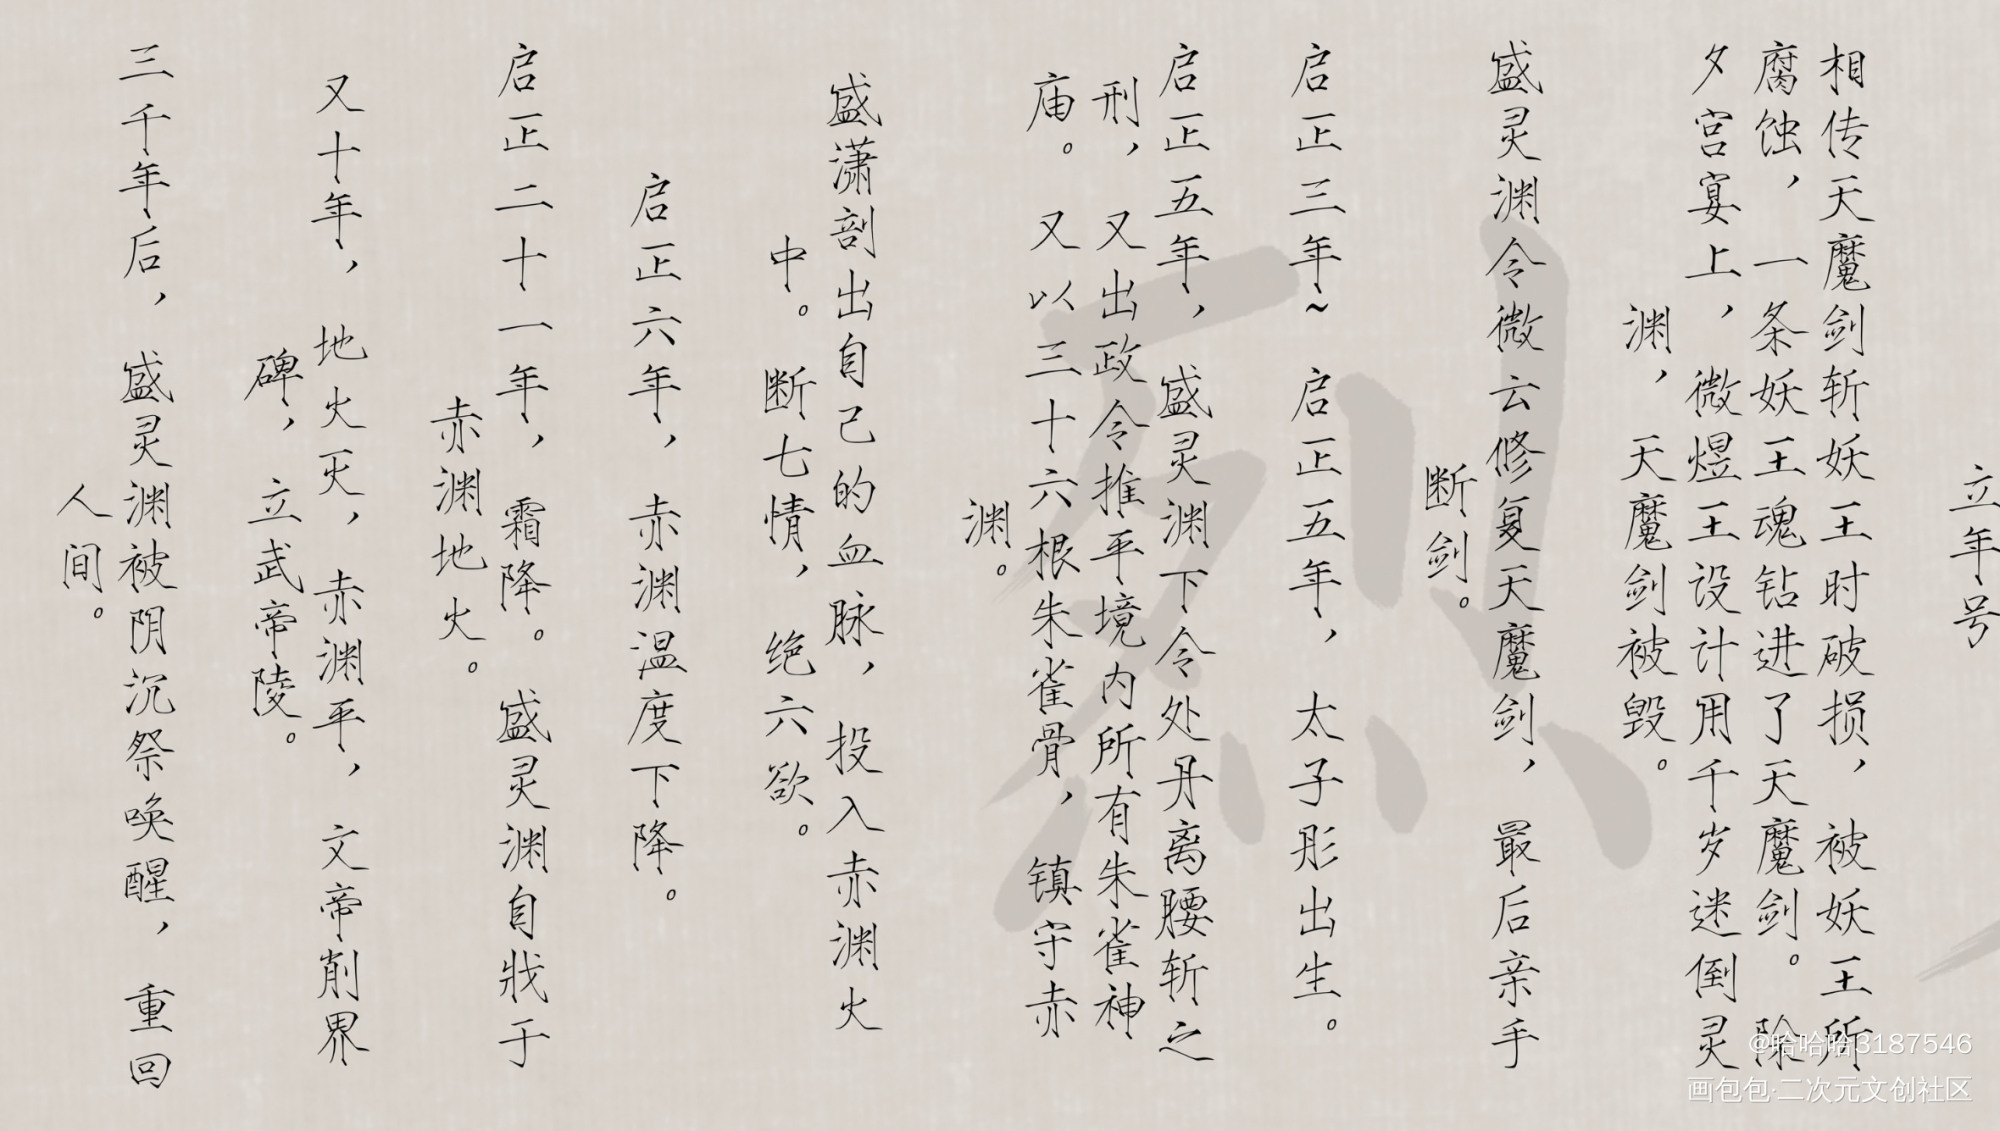 立年号
相传天魔剑斩妖王时破损，被妖王所
腐蚀，一条妖王魂钻进了天魔剑。除
夕宫宴上，微煜王设计用千岁迷倒灵
渊，天魔剑被毁。
盛灵渊令微云修复天魔剑，最后亲手
断剑。
启正三年~启正五年，太子彤出生。
启正五年，盛灵渊下令处丹离腰斩之
刑，又出政令推平境内所有朱雀神
庙。又以三十六根朱雀骨，镇守赤
渊。
盛潇剖出自己的血脉，投入赤渊火
中。断七情，绝六欲。
启正六年，赤渊温度下降。
启正二十一年，霜降。盛灵渊自戕于
赤渊地火。
又十年，地火灭，赤渊平，文帝削界
碑，立武帝陵。
三千年后，盛灵渊被阴沉祭唤醒，重回
人间。
烈
@哈哈哈3187546
画包包·二次元文创社区